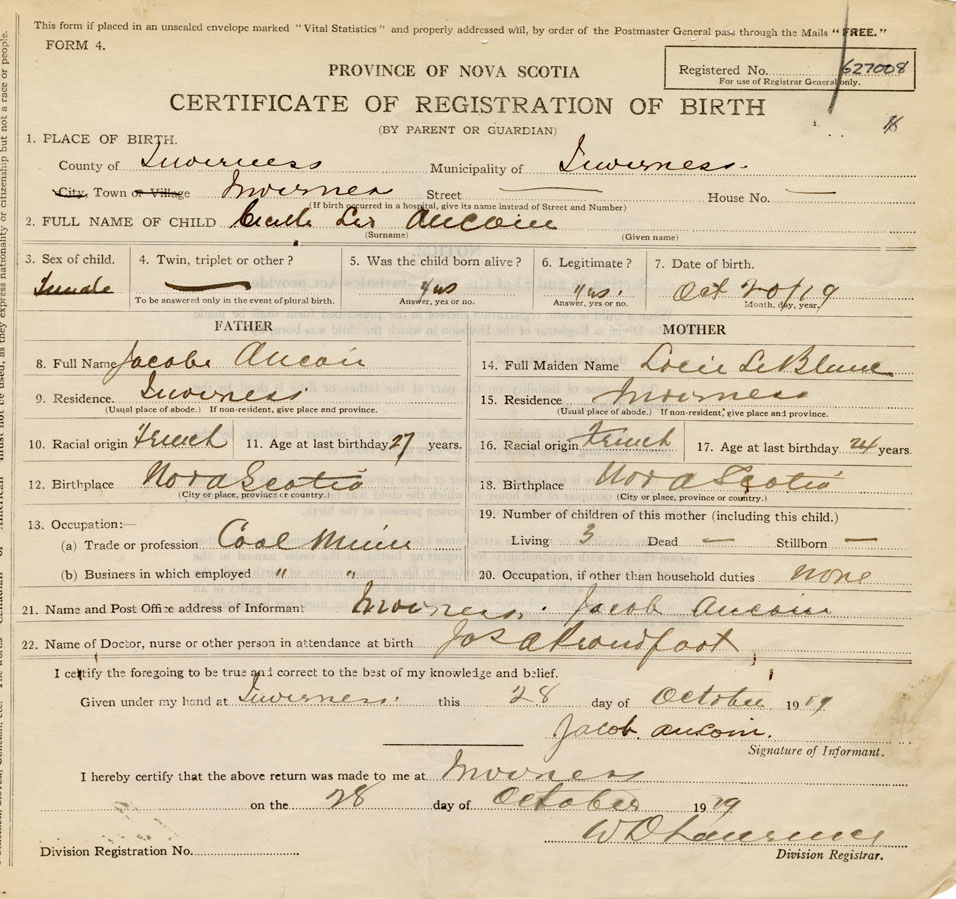 This form if placed in an unsealed envelope marked "Vital Statistics" and properly addressed will, by order of the Postmaster General pass through the Mails "FREE."
FORM 4.
Registered No. 627008
For use of Registrar General only.
PROVINCE OF NOVA SCOTIA
CERTIFICATE OF REGISTRATION OF BIRTH
(BY PARENT OR GUARDIAN)
1. PLACE OF BIRTH.
County of Inverness Municipality of Inverness
City, Town or Village Inverness Street — House No. —
(If birth occurred in a hospital, give its name instead of Street and Number)
2. FULL NAME OF CHILD Aucoin
(Surname) (Given name)
3. Sex of child. 4. Twin, triplet or other? 5. Was the child born alive? 6. Legitimate? 7. Date of birth.
Female — yes yes. Oct 20/19
To be answered only in the event of plural birth. Answer, yes or no. Answer, yes or no. Month, day, year.
FATHER MOTHER
8. Full Name Jacob Aucoin 14. Full Maiden Name LeBlanc
9. Residence. Inverness 15. Residence Inverness
(Usual place of abode.) If non-resident, give place and province. (Usual place of abode.) If non-resident, give place and province.
10. Racial origin French 11. Age at last birthday 27 years. 16. Racial origin French 17. Age at last birthday 24 years.
12. Birthplace Nova Scotia 18. Birthplace Nova Scotia
(City or place, province or country.) (City or place, province or country.)
13. Occupation:— 19. Number of children of this mother (including this child.)
(a) Trade or profession Coal Miner Living 3 Dead — Stillborn —
(b) Business in which employed " " 20. Occupation, if other than household duties none
21. Name and Post Office address of Informant Inverness. Jacob Aucoin
22. Name of Doctor, nurse or other person in attendance at birth.
I certify the foregoing to be true and correct to the best of my knowledge and belief.
Given under my hand at Inverness. this 28 day of October 1919
Jacob Aucoin.
Signature of Informant.
I hereby certify that the above return was made to me at Inverness
on the 28 day of October 1919
Division Registration No. Division Registrar.